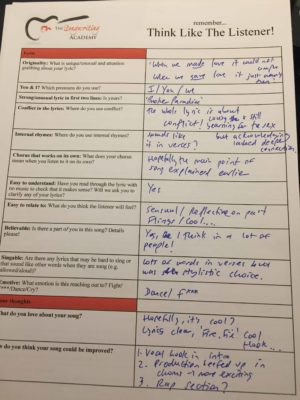 THE
Songwriting
ACADEMY
remember...
Think Like The Listener!
Originality: What is unique/unusual and attention
grabbing about your lyric?
When we made love it could not
When we love it just
You & I? Which pronouns do you use?
I / You / we
Strong/unusual lyric in first two lines: Is yours?
Paradise
Conflict in the lyrics: Where do you use conflict?
The whole lyric is about
conflict / yearning for sex
but acknowledging
Internal rhymes: Where do you use internal rhymes?
sounds like
it in verses?
deeper
connection
Chorus that works on its own: What does your chorus
mean when you listen to it on its own?
Hopefully the main point of
song explained earlier
Easy to understand: Have you read through the lyric with
no music to check that it makes sense? Will we ask you to
clarify any of your lyrics?
Yes
Easy to relate to: What do you think the listener will feel?
Sensual / Reflective on past
Flings / Cool...
Believable: Is there a part of you in this song? Details
please!
Yes, I think in a lot of
people!
Singable: Are there any lyrics that may be hard to sing or
that sound like other words when they are sung (e.g.
allowed/aloud)?
Lots of words in verses
was stylistic choice.
Emotive: What emotion is this reaching out to? Fight/
F***/Dance/Cry?
Dance / F***
your thoughts
What do you love about your song?
Hopefully, it's cool?
Lyrics clear, 'Fire, Fix' Cool
Hook...
How do you think your song could be improved?
1. Vocal hook in intro
2. Production beefed up in
chorus → more exciting
3. Rap section?